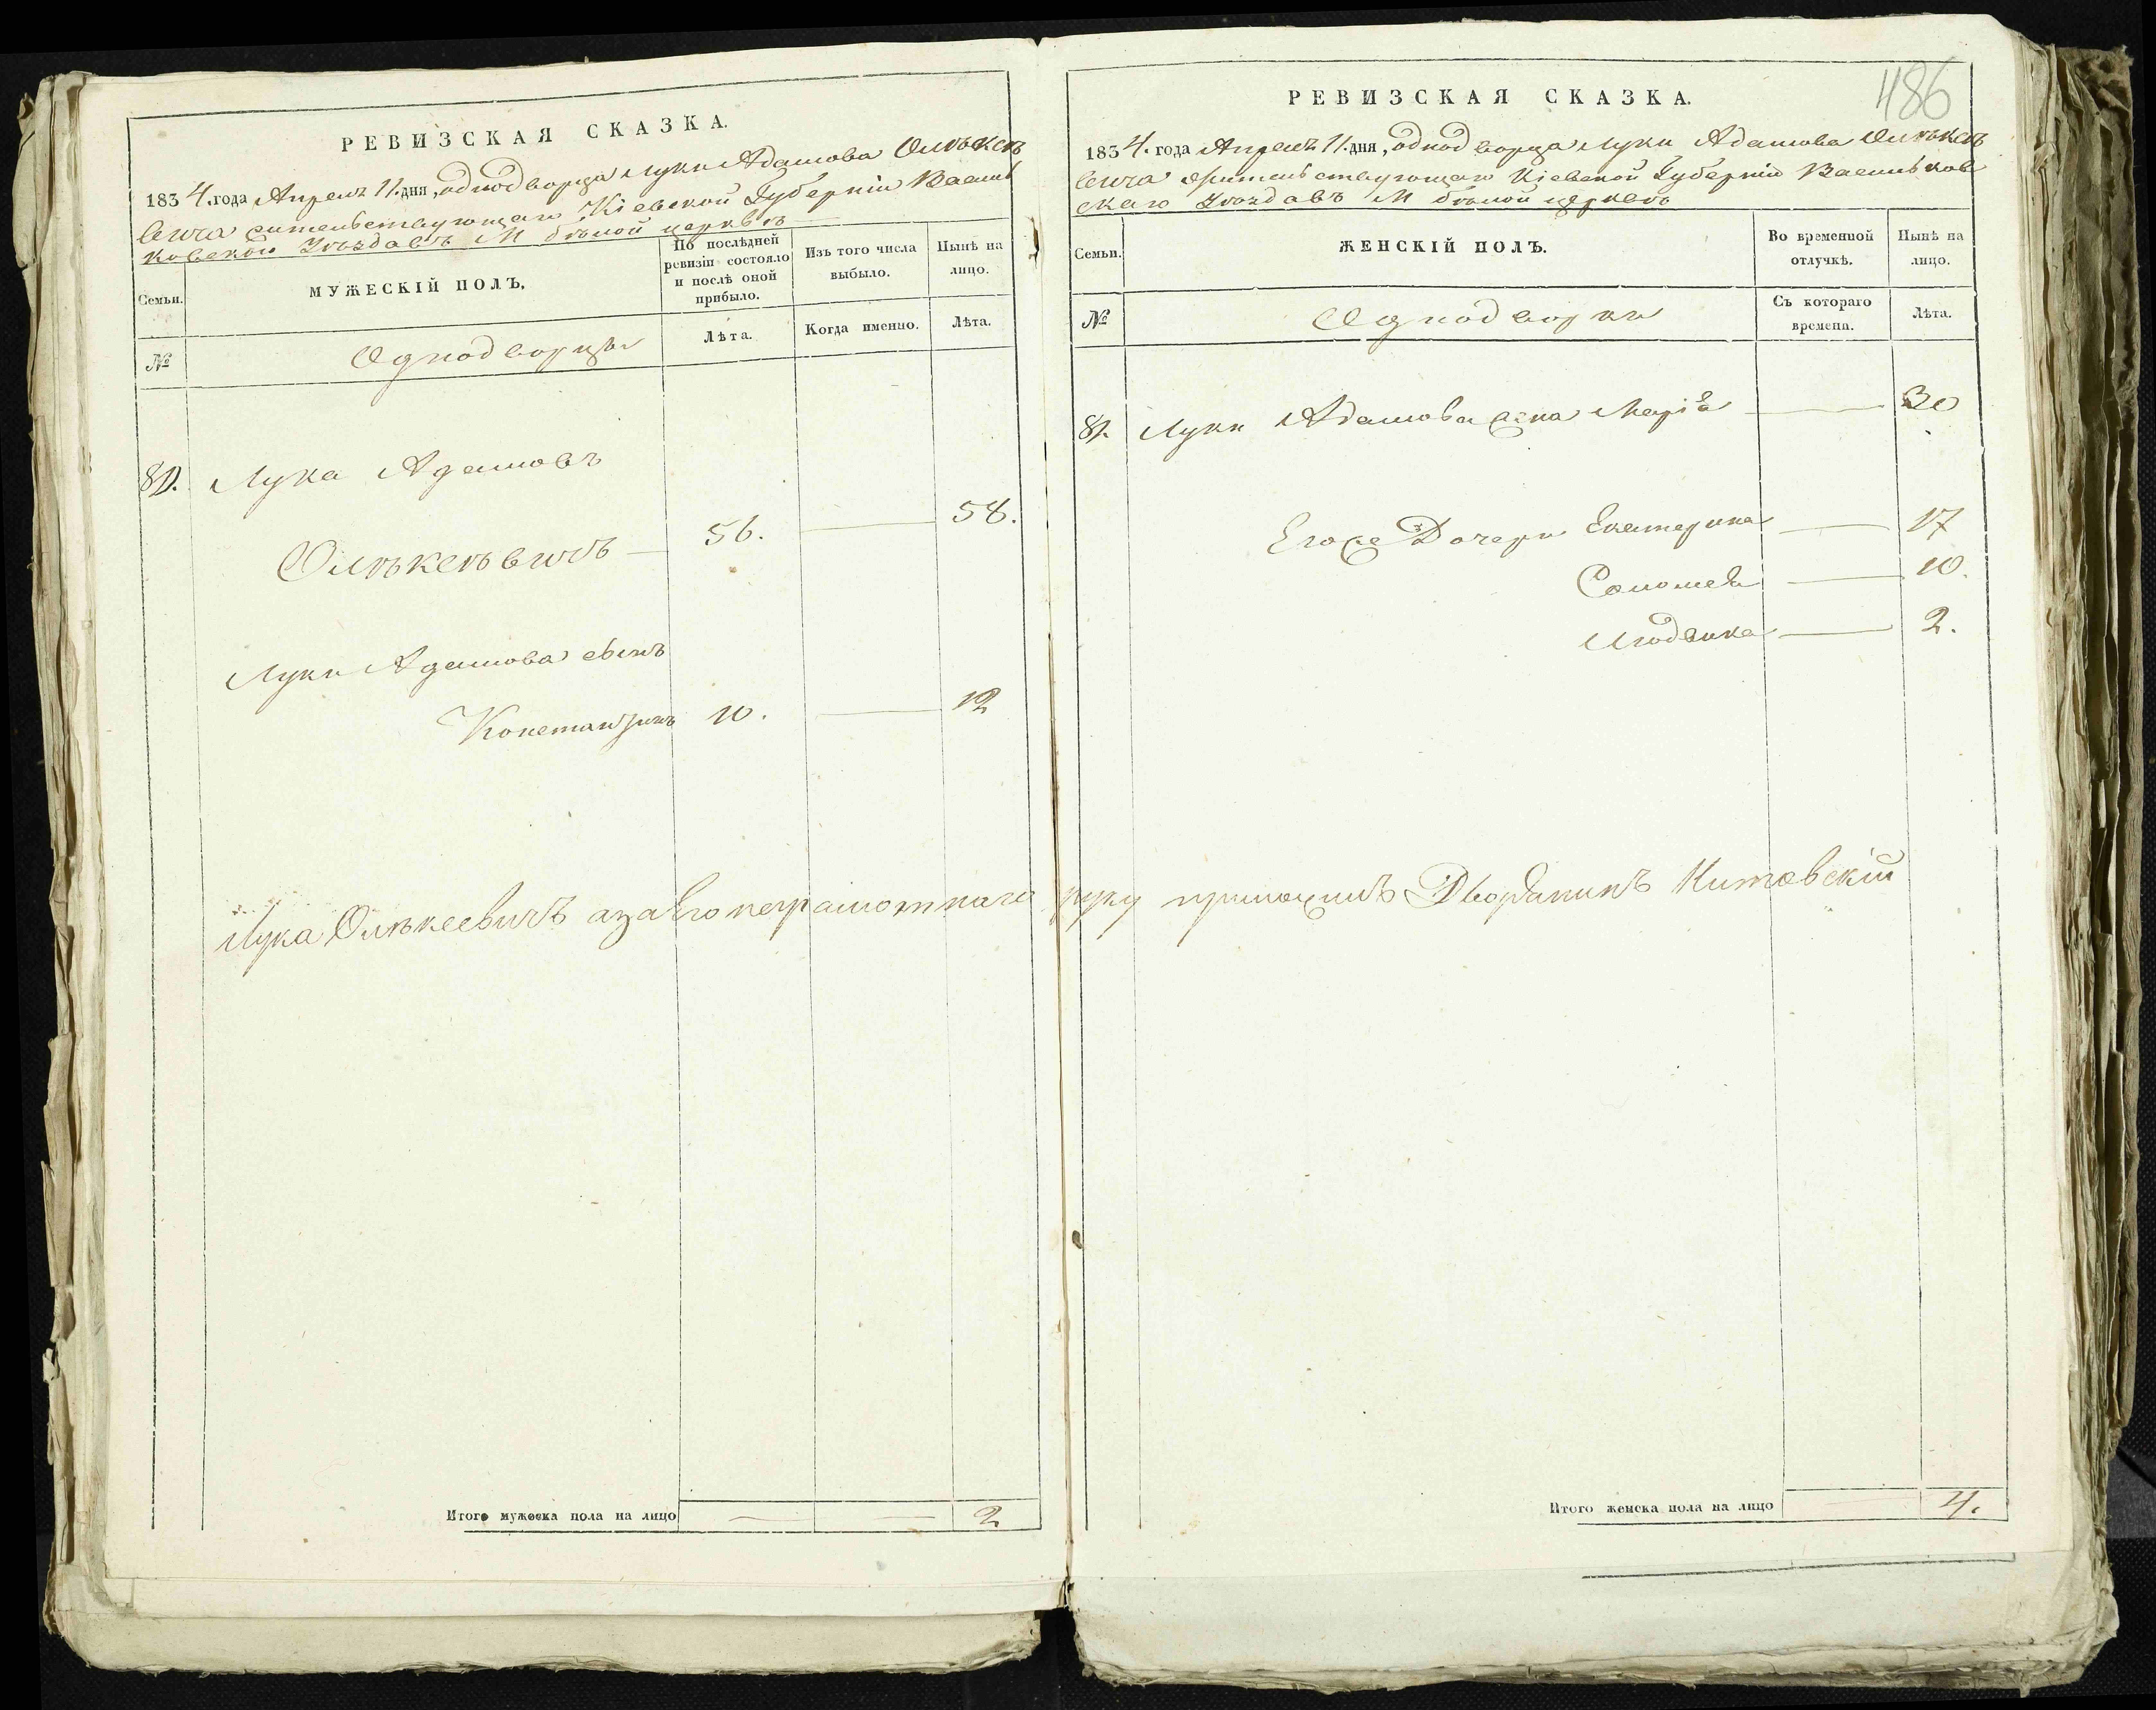 РЕВИЗСКАЯ СКАЗКА.
1834. года Апреля 11. дня, однодворца Луки Адамова Олъкеѣ
вича жительствующаго Кіевской Губерніи Василь
ковской Уѣзда въ М бѣлой церквѣ
Семьи.
МУЖЕСКІЙ ПОЛЪ.
По послѣдней ревизіи состояло и послѣ оной прибыло.
Изъ того числа выбыло.
Нынѣ на лицо.
№
Однодворцы
Лѣта.
Когда именно.
Лѣта.
Лука Адамовъ
56. 58.
Луки Адамова сынъ
Константинъ 10. 12
Лука
а за его неграмотнаго
Итого мужеска пола на лицо 2
486
РЕВИЗСКАЯ СКАЗКА.
1834. года Апреля 11. дня, однодворца Луки Адамова
вича жительствующаго Кіевской Губерніи Васильков
скаго Уѣзда въ М бѣлой церквѣ
Семьи.
ЖЕНСКІЙ ПОЛЪ.
Во временной отлучкѣ.
Нынѣ на лицо.
№
Однодворки
Съ котораго времени.
Лѣта.
81. Луки Адамова жена Марія 30
Егоже Дочери Екатерина 17
Соломея 10.
Людвика 2.
руку приложилъ Дворянинъ
Итого женска пола на лицо 4.